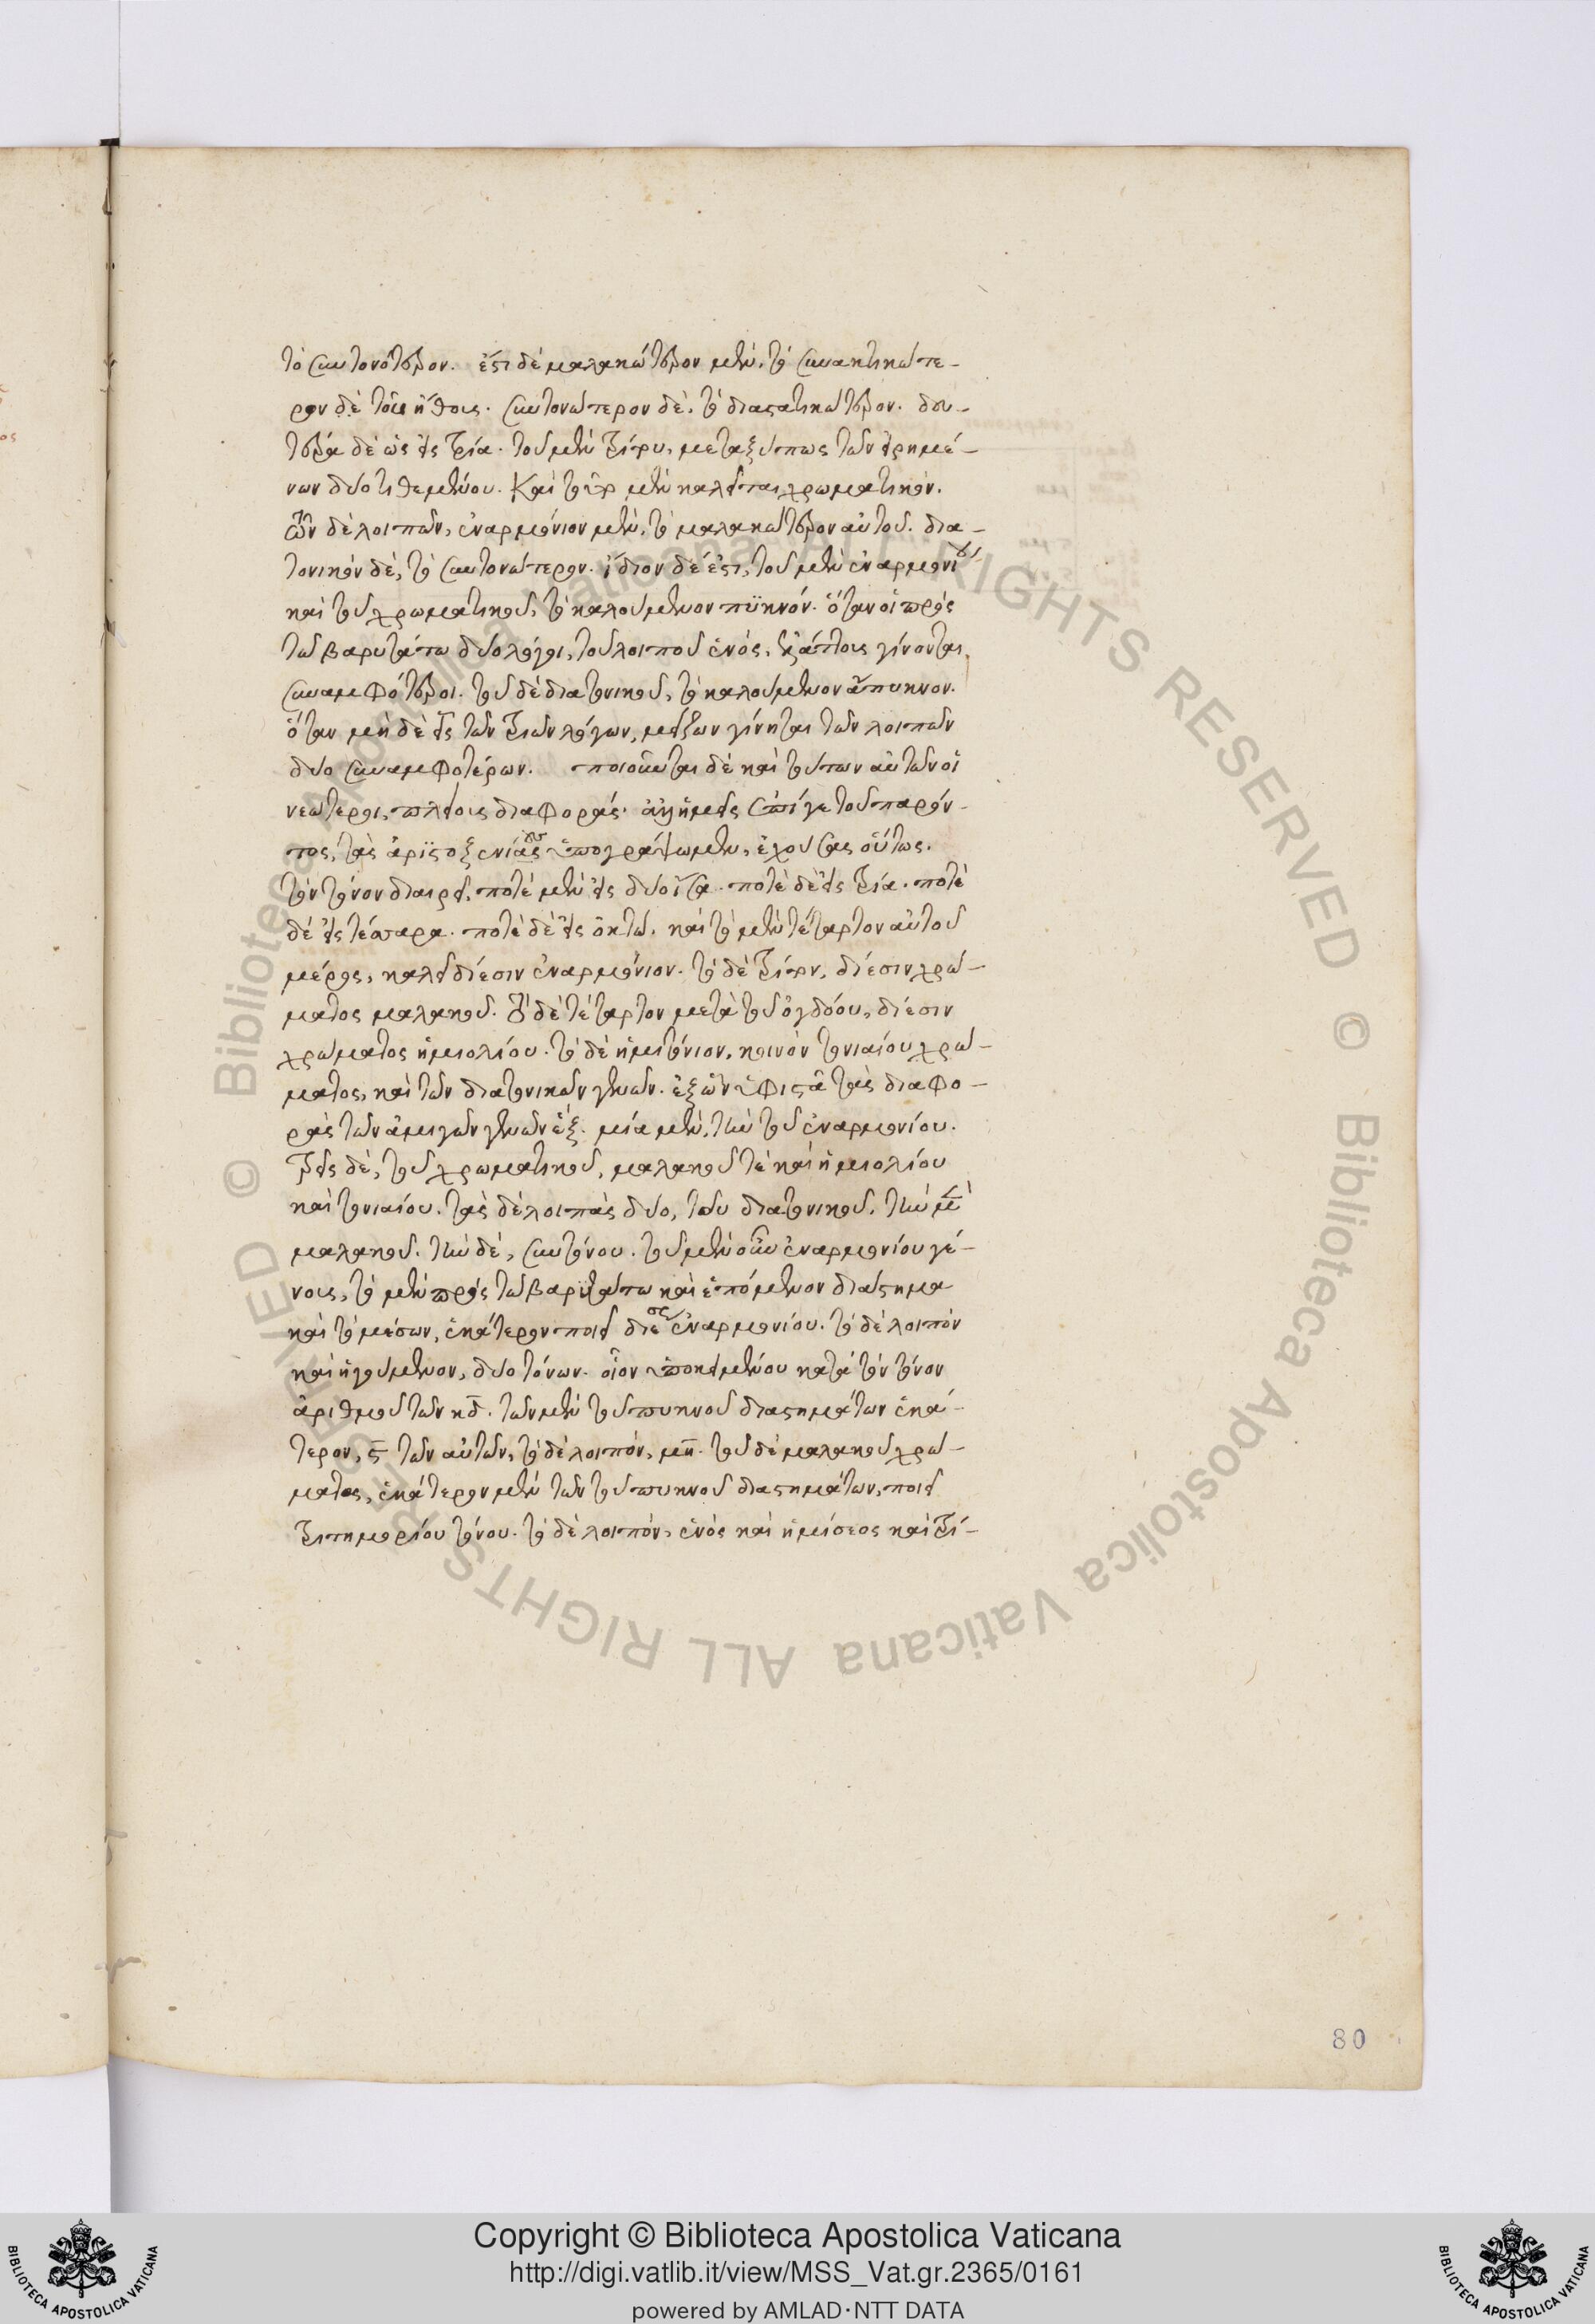 τὸ συντονώτερον. ἔστι δὲ μαλακώτερον μὲν, τὸ συνακτικώτε-
ρον δὲ τοῖς ἤθους. συντονώτερον δὲ, τὸ διαστατικώτερον. δευ-
τέρα δὲ ὡς εἰς τρία. τοῦ μὲν τρίτου, μεταξύ πως τῶν εἰρημέ-
νων δύο τιθεμένου. Καὶ τοῦτο μὲν καλεῖται χρωματικόν.
τῶν δὲ λοιπῶν, ἐναρμόνιον μὲν, τὸ μαλακώτερον αὐτοῦ. δια-
τονικὸν δὲ, τὸ συντονώτερον. ἴδιον δέ ἐστι, τοῦ μὲν ἐναρμονίου
καὶ τοῦ χρωματικοῦ, τὸ καλούμενον πϋκνόν. ὅταν οἱ πρὸς
τῶ βαρυτάτω δύο λόγοι, τοῦ λοιποῦ ἑνός, ἐλάττους γίνονται,
συναμφότεροι. τοῦ δὲ διατονικοῦ, τὸ καλούμενον ἄπυκνον.
ὅταν μὴ δὲ εἷς τῶν τριῶν λόγων, μείζων γίνηται τῶν λοιπῶν
δύο συναμφοτέρων. ποιοῦνται δὲ καὶ τούτων αὐτῶν οἱ
νεώτεροι, πλείους διαφοράς. ἀλλ' ἡμεῖς ἐπί γε τοῦ παρόν-
τος, τὰς ἀριϊστοξενίας ὑπογράψωμεν, ἐχούσας οὕτως.
τὸν τόνον διαιρεῖ, ποτὲ μὲν εἰς δύο ἴσα. ποτὲ δὲ εἰς τρία. ποτὲ
δὲ εἰς τέσσαρα. ποτὲ δὲ εἰς ὀκτώ. καὶ τὸ μὲν τέταρτον αὐτοῦ
μέρος, καλεῖ δίεσιν ἐναρμόνιον. τὸ δὲ τρίτον, δίεσιν χρώ-
ματος μαλακοῦ. τὸ δὲ τέταρτον μετὰ τοῦ ὀγδόου, δίεσιν
χρώματος ἡμιολίου. τὸ δὲ ἡμιτόνιον, κοινὸν τονιαίου χρώ-
ματος, καὶ τῶν διατονικῶν γενῶν. ἐξ ὧν ὑφιστᾶ τὰς διαφο-
ρὰς τῶν ἀμιγῶν γενῶν ἓξ. μία μὲν, τὴν τοῦ ἐναρμονίου.
τρεῖς δὲ, τοῦ χρωματικοῦ, μαλακοῦ τὲ καὶ ἡμιολίου
καὶ τονιαίου. τὰς δὲ λοιπὰς δύο, τοῦ διατονικοῦ. τὴν μὲν
μαλακοῦ. τὴν δὲ, συντόνου. τοῦ μὲν οὖν ἐναρμονίου γέ-
νους, τὸ μὲν πρὸς τῶ βαρϋτάτω καὶ ἑπόμενον διάστημα
καὶ τὸ μέσων, ἑκάτερον ποιεῖ διέσεως ἐναρμονίου. τὸ δὲ λοιπὸν
καὶ ἡγούμενον, δύο τόνων. οἷον ὑποκειμένου κατὰ τὸν τόνον
ἀριθμοῦ τῶν κδ. τῶν μὲν τοῦ πυκνοῦ διαστημάτων ἑκά-
τερον, ς τῶν αὐτῶν, τὸ δὲ λοιπόν, μη. τοῦ δὲ μαλακοῦ χρώ-
ματος, ἑκάτερον μὲν τῶν τοῦ πυκνοῦ διαστημάτων, ποιεῖ
τριτημορίου τόνου. τὸ δὲ λοιπόν, ἑνὸς καὶ ἡμίσεος καὶ τρί-
80
Copyright © Biblioteca Apostolica Vaticana
http://digi.vatlib.it/view/MSS_Vat.gr.2365/0161
powered by AMLAD·NTT DATA
BIBLIOTECA APOSTOLICA VATICANA
BIBLIOTECA APOSTOLICA VATICANA
© Biblioteca Apostolica Vaticana ALL RIGHTS RESERVED © Biblioteca Apostolica Vaticana ALL RIGHTS RESERVED